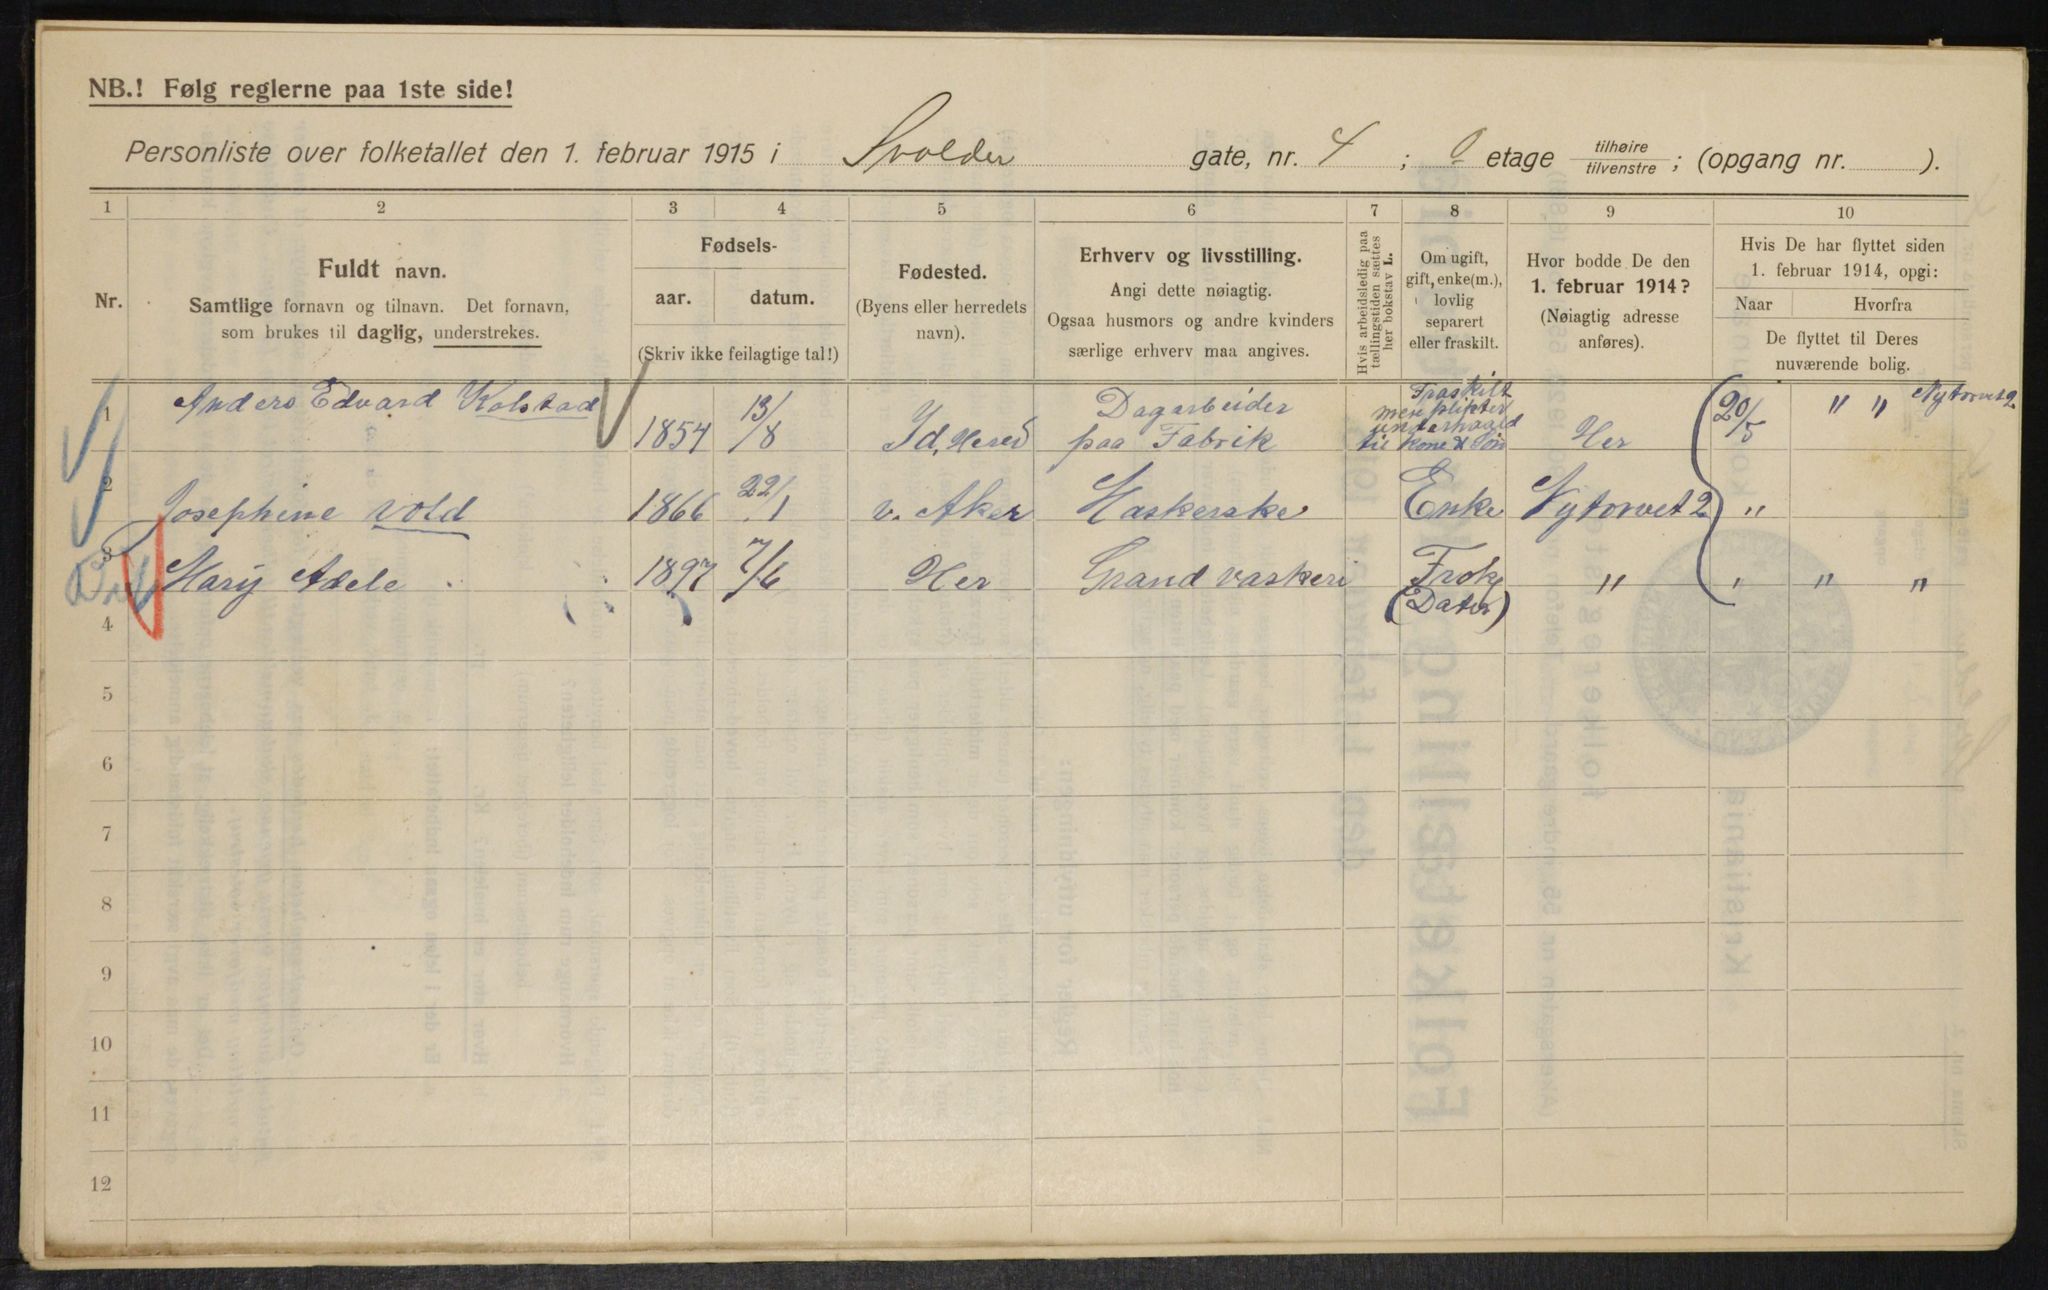 NB.! Følg reglerne paa 1ste side!
Personliste over folketallet den 1. februar 1915 i Svolder gate, nr. 4 ; 0 etage tilhøire / tilvenstre ; (opgang nr. ).
1 2 3 4 5 6 7 8 9 10
Nr.
Fuldt navn.
Samtlige fornavn og tilnavn. Det fornavn,
som brukes til daglig, understrekes.
Fødsels-
aar. datum.
(Skriv ikke feilagtige tal!)
Fødested.
(Byens eller herredets
navn).
Erhverv og livsstilling.
Angi dette nøiagtig.
Ogsaa husmors og andre kvinders
særlige erhverv maa angives.
Hvis arbeidsledig paa
tællingstiden sættes
her bokstav L.
Om ugift,
gift, enke(m.),
lovlig
separert
eller fraskilt.
Hvor bodde De den
1. februar 1914?
(Nøiagtig adresse
anføres).
Hvis De har flyttet siden
1. februar 1914, opgi:
Naar Hvorfra
De flyttet til Deres
nuværende bolig.
1 Anders Edvard Kolstad 1854 13/8 Id, Hered Dagarbeider paa Fabrik Fraskilt men plikter underhaald til Kone & Søn Her 20/5 " " Nytorvet 2
2 Josephine Vold 1866 22/1 v. Aker Vaskerske Enke Nytorvet 2 "
3 Mary Adele 1897 7/6 Her Grand vaskeri Frøk (Dater) " " " "
4
5
6
7
8
9
10
11
12